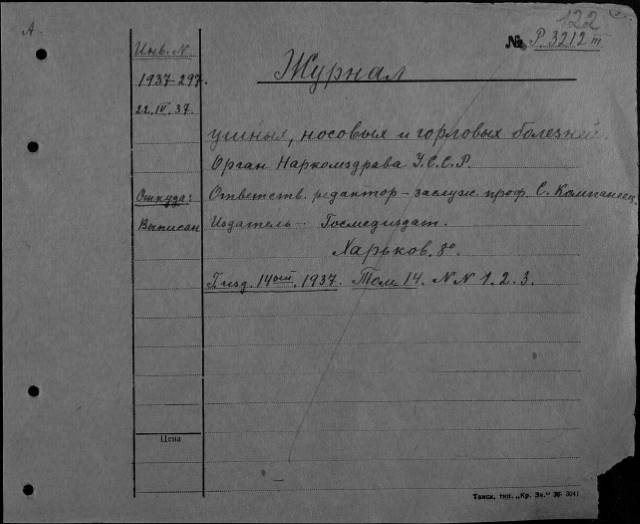 А
122
№ Р. 3212 III
Инв. N.
Журнал
1937-297.
22.IV.37.
ушных, носовых и горловых болезней.
Орган Наркомздрава У.С.С.Р.
Откуда:
Ответств. редактор – заслуж. проф. С. Компанеец
Выписан
Издатель – Госмедиздат.
Харьков. 8°
Г. изд. 14ый. 1937. Том 14. N N 1. 2. 3.
Цена
Тамск. тип. „Кр. Зн." 36 3041